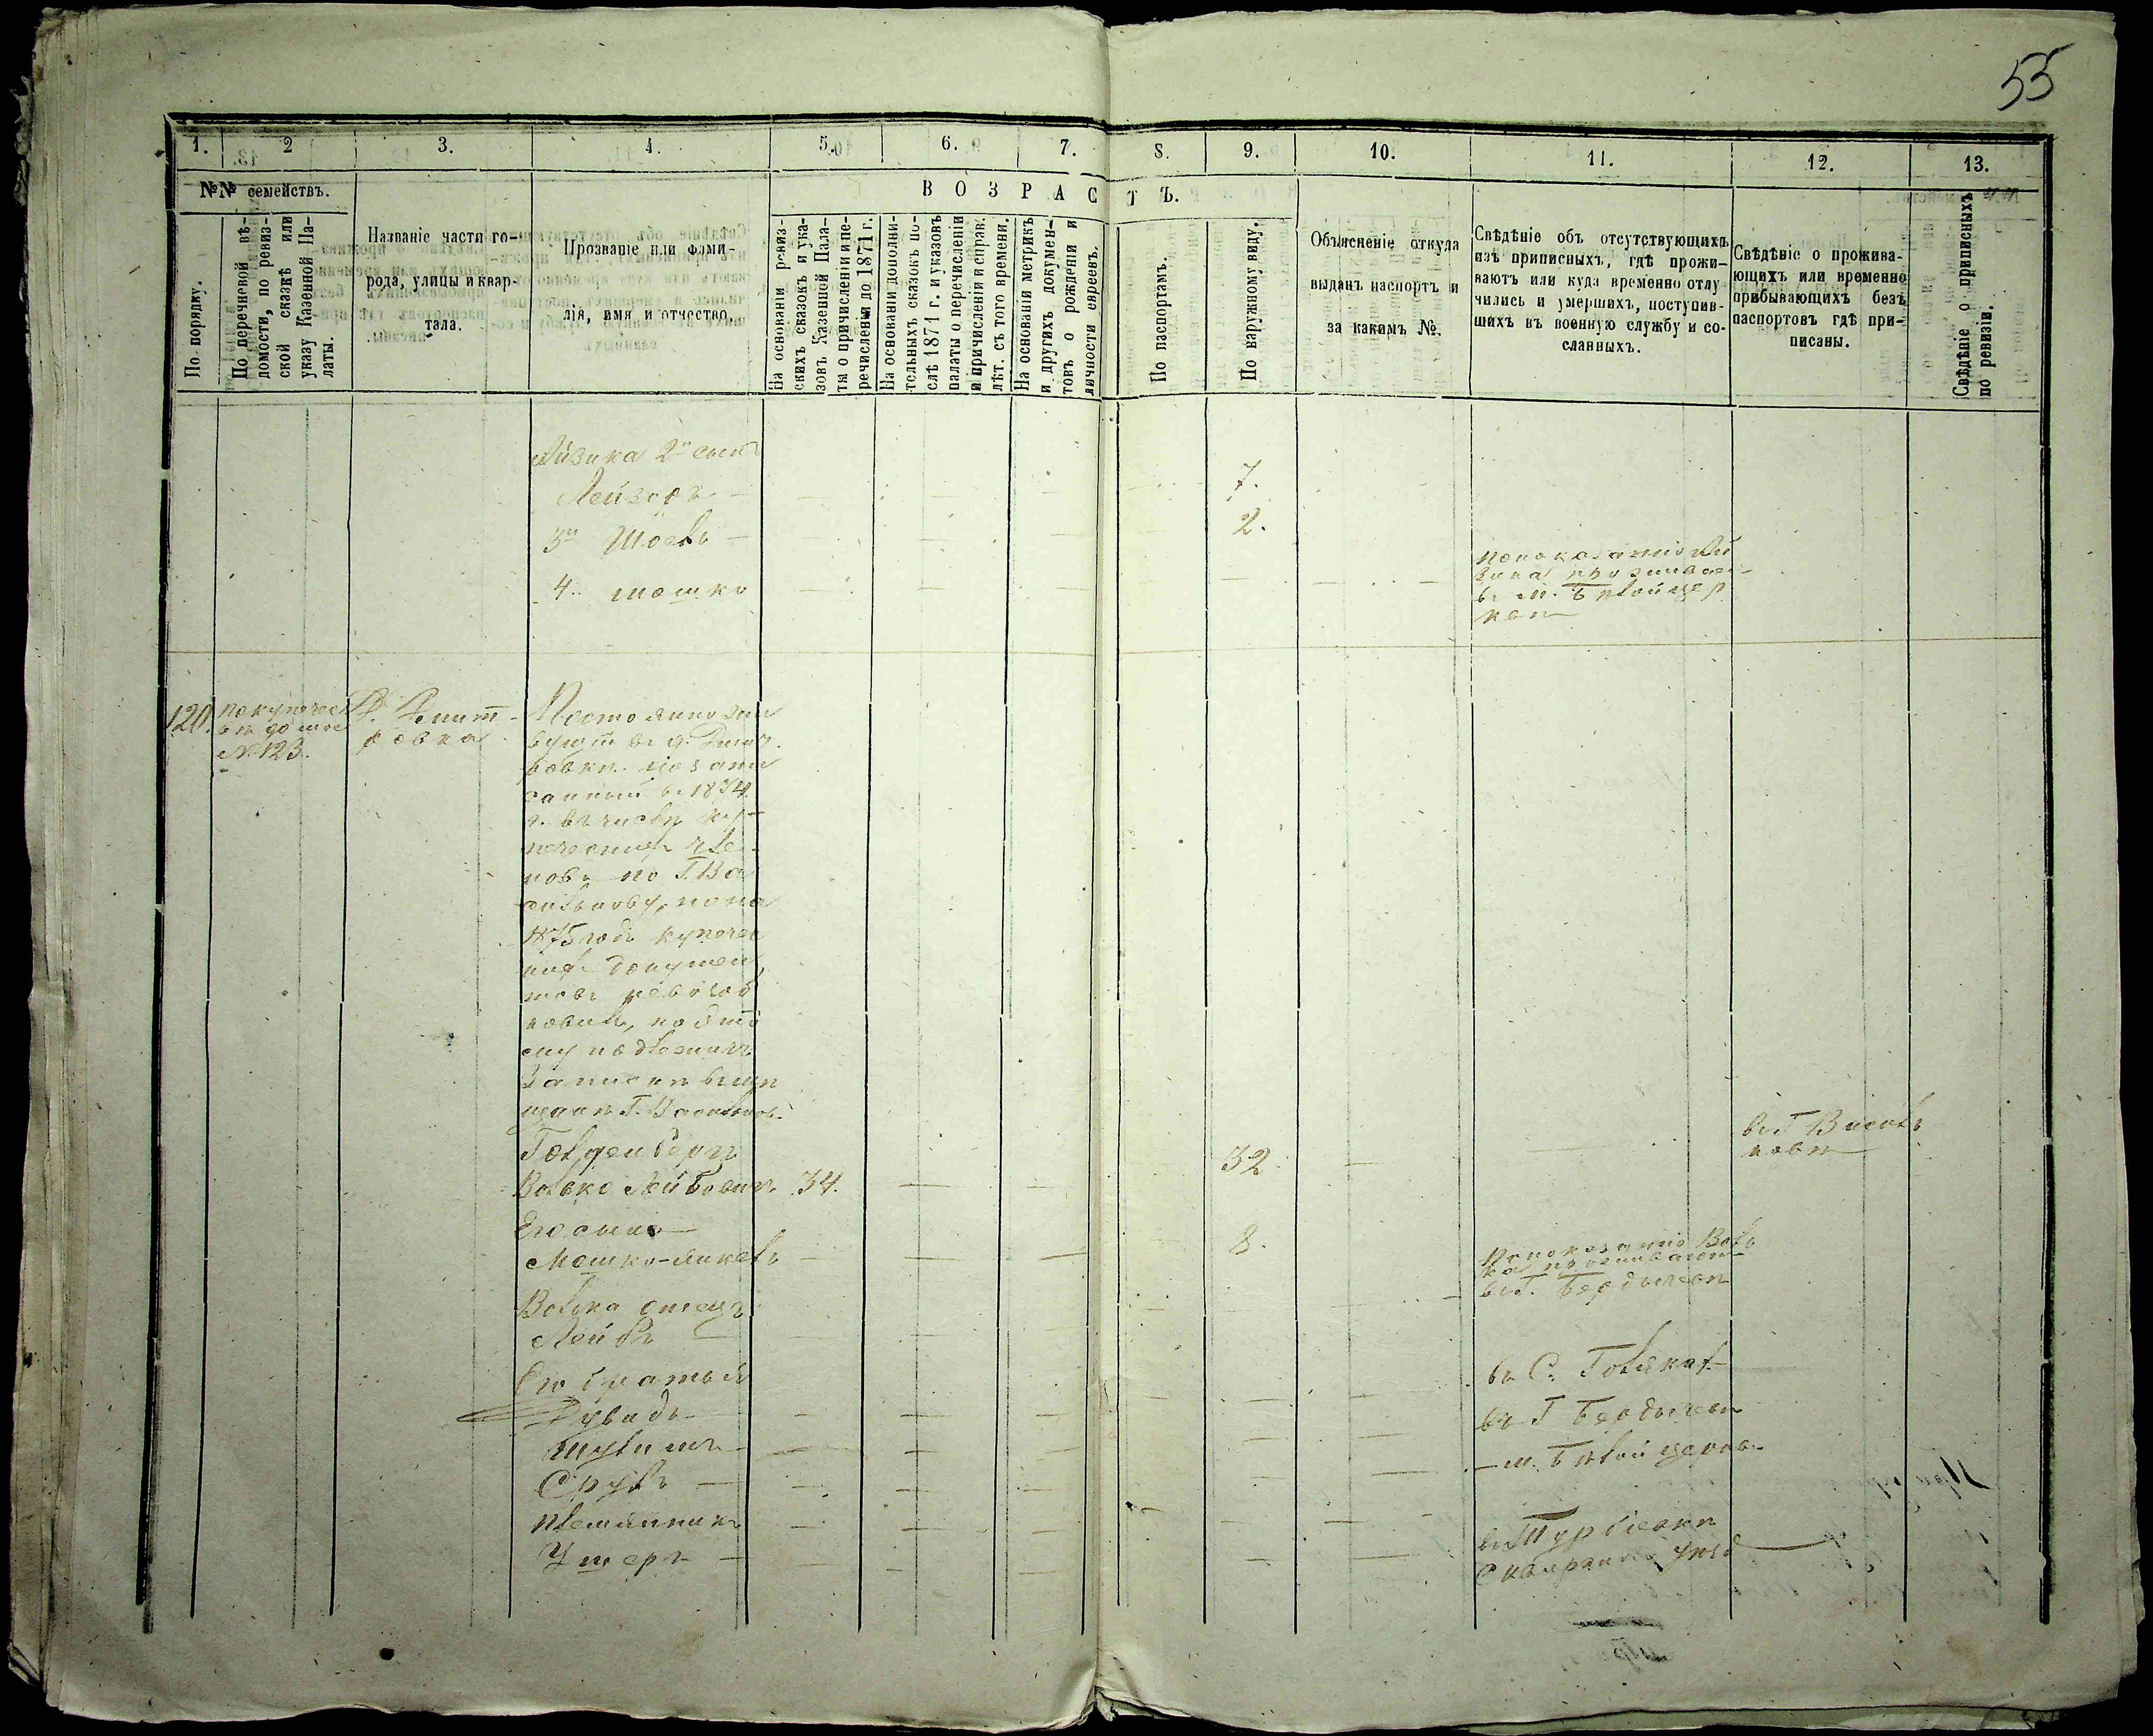 55
1. 2 3. 4. 5. 6. 7. 8. 9. 10. 11. 12. 13.
№№ семействъ.
По порядку.
По перечневой вѣ-
домости, по ревиз-
ской сказкѣ или
указу Казенной Па-
латы.
Названіе части го-
рода, улицы и квар-
тала.
Прозваніе или фами-
лія, имя и отчество.
ВОЗРАСТЪ.
На основаніи ревиз-
скихъ сказокъ и ука-
зовъ Казенной Пала-
ты о причисленіи и пе-
речисленіи до 1871 г.
На основаніи дополни-
тельныхъ сказокъ по-
слѣ 1871 г. и указовъ
палаты о перечисленіи
и причисленіи и справ.
лѣт. съ того времени.
На основаніи метрикъ
и другихъ докумен-
товъ о рожденіи и
личности евреевъ.
По паспортамъ.
По наружному виду.
Объясненіе откуда
выданъ паспортъ и
за какимъ №.
Свѣдѣніе объ отсутствующихъ
изъ приписныхъ, гдѣ прожи-
ваютъ или куда временно отлу
чились и умершихъ, поступив-
шихъ въ военную службу и со-
сланныхъ.
Свѣдѣніе о прожива-
ющихъ или временно
прибывающихъ безъ
паспортовъ гдѣ при-
писаны.
Свѣдѣніе о приписныхъ
по ревизіи.
Айзика 2й сынъ
Лейзоръ — 7.
3й Шоель — 2.
4. Мошко
по показанію Ай
зика проживает
въ м. Бѣлой цер
кви
120.
№ 123.
Постоянно жи
вущій въ д. Дмит
ровки
санный въ 1874
г. въ числѣ ку-
печескихъ чле-
новъ по Г. Ва
силькову, но на
1875 годъ купечес
кихъ докумен
товъ не возоб
новилъ, поэто
му подлежитъ
записки въ мѣ
щане Г. Васильков.
Гольденбергъ
Волько Лейбовичъ 34. 32
въ Г Василь
ковѣ
Его сынъ
Мошко-Янкель 8.
По показанію Воль
ка проживаютъ
въ г. Бердичевѣ
Волька отецъ
Лейбъ —
въ С.
Его братья
Дувидъ —
въ Г Бердичевѣ
Шулимъ —
— м. Бѣлой церкв.
Сруль —
племянникъ
Ушеръ —
въ Турбіевки
Сквирскаго уѣзд